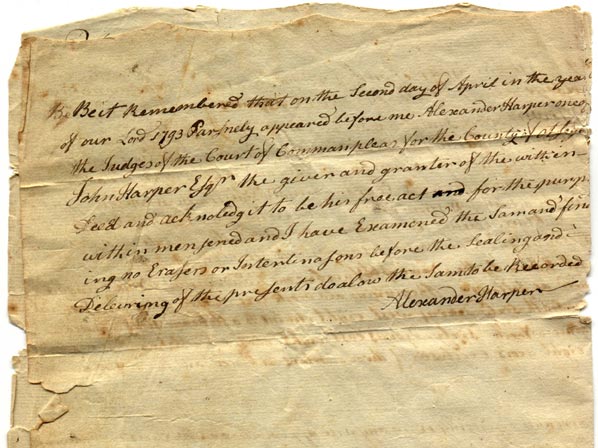 Beit Remembered that on the Second day of April in the year
of our Lord 1793 Parsnely appeared before me Alexander Harper one of
the Judges of the Court of Commanpleas for the County of
John Harper Esqr the giver and granter of the within
Deed and acknoledg it to be his free act and for the purp
within menscned and I have Examened the Sam and find
ing no Erasers or Interlinasons before the Sealing and
Deleuring of the presents do alow the Sam to be Recorded
Alexander Harper